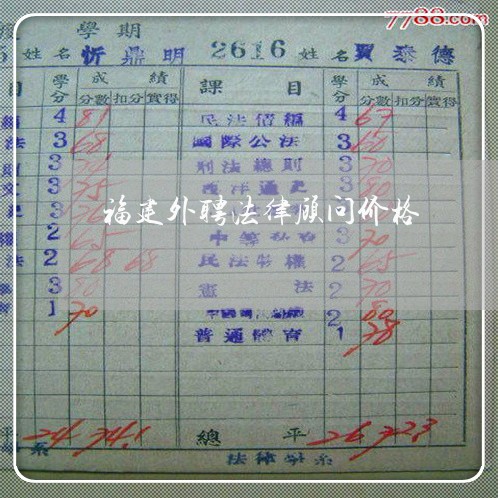 7788.com
學期
姓名 忻鼎明 2616 姓名 賈泰德
目 學分 成績 課目 學分 成績
分數 扣分 實得 分數 扣分 實得
4 81 民法債編 4 67
法 3 68 國際公法 3 60
3 刑法總則 3 70
3 75 西洋通史 3 80
福建外聘法律顾问价格
2 65 3 70
法 2 68 68 民法物權 2 65
3 80 憲法 2 70
1 70 2 80
普通體育 1 78
平 24 74.1 總平 26 72.3
系 法律學系